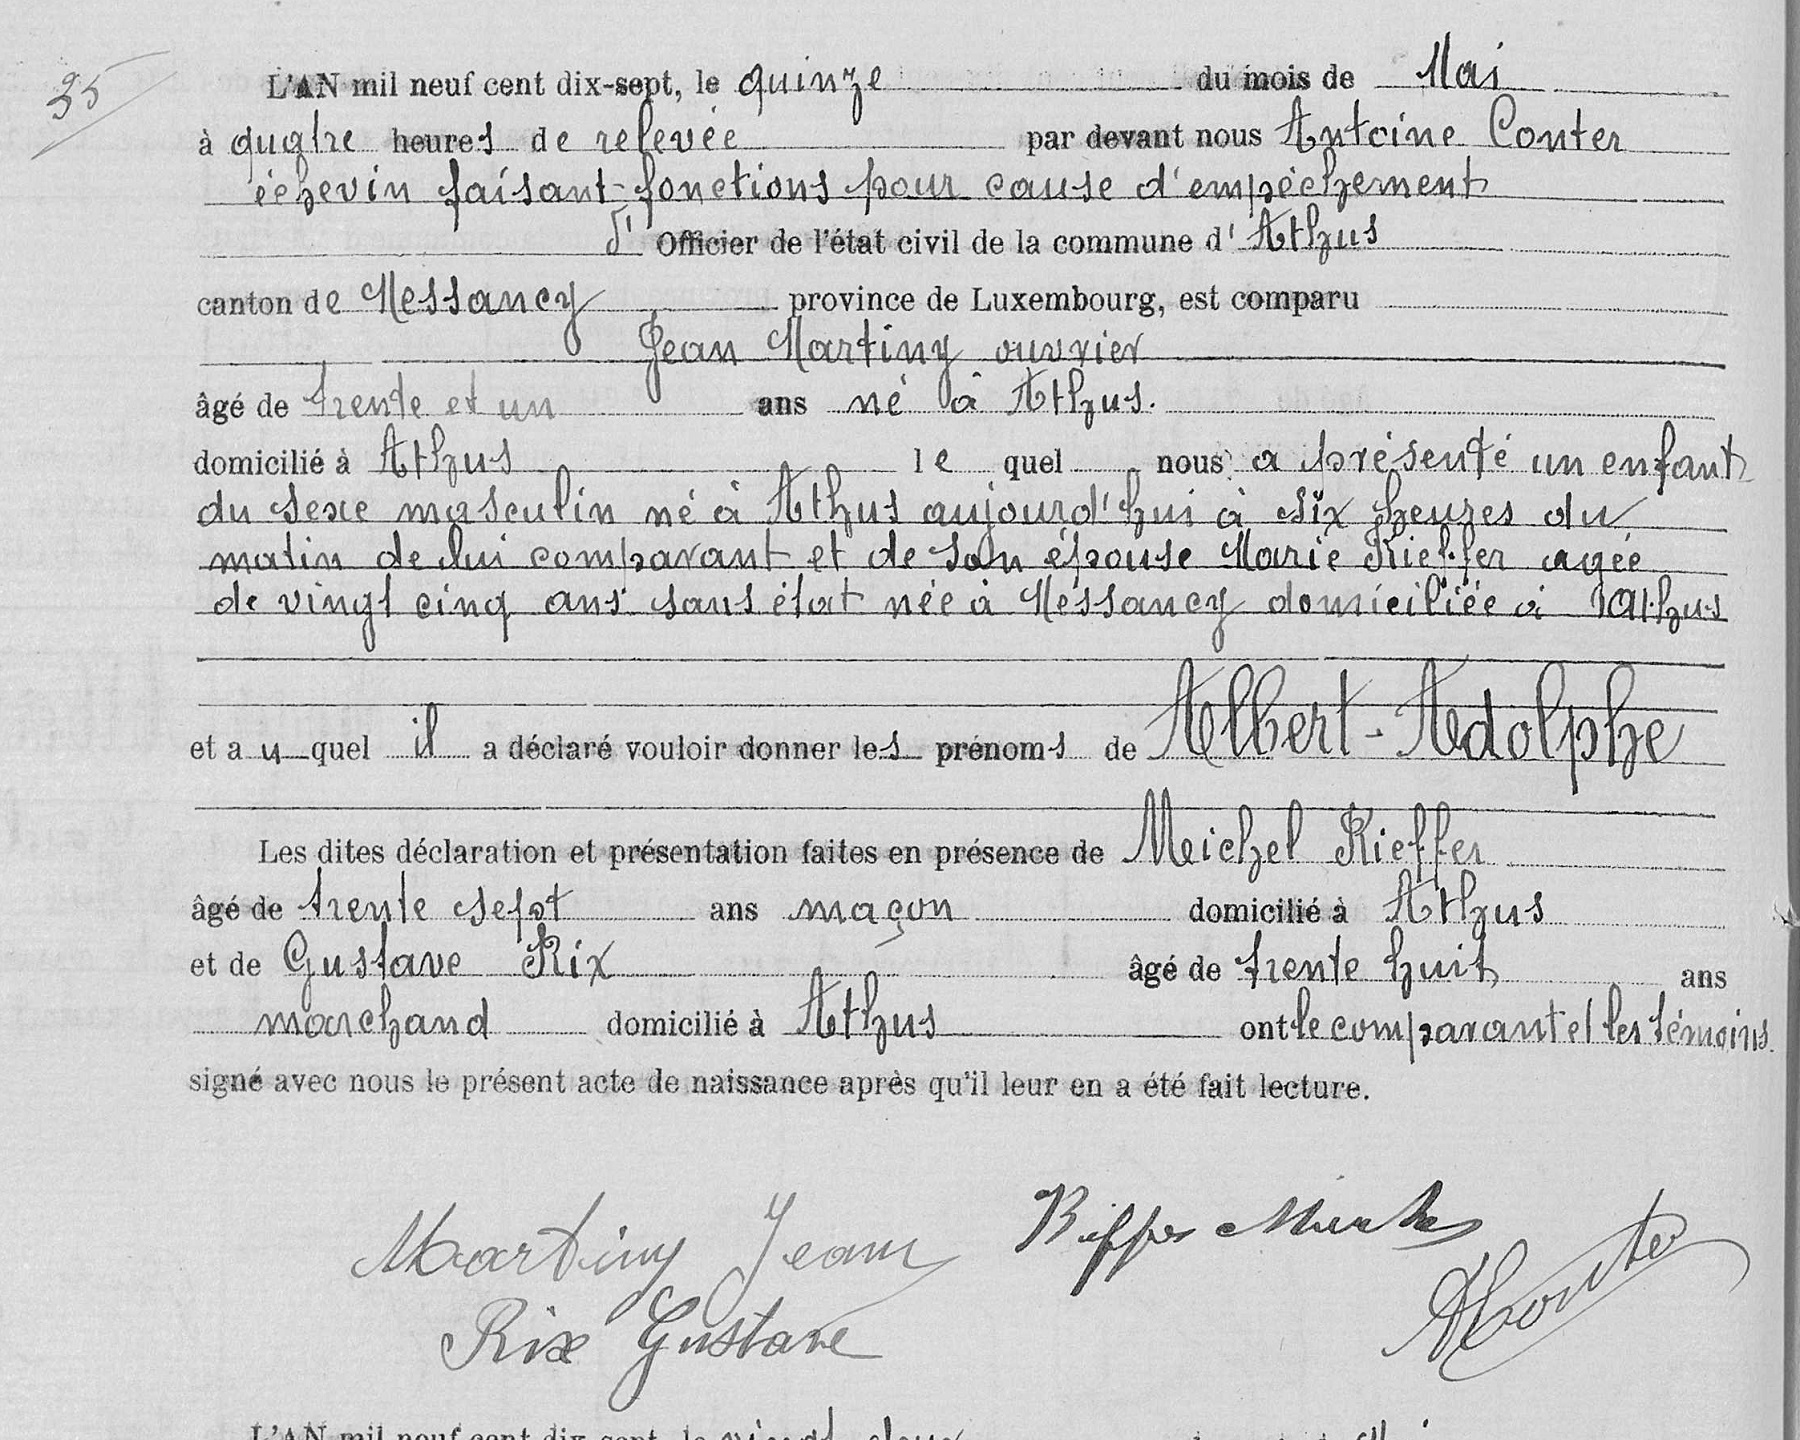 35
L'AN mil neuf cent dix-sept, le quinze du mois de Mai
à quatre heures de relevée par devant nous Antoine Conter
échevin faisant-fonctions pour cause d'empêchement
d' Officier de l'état civil de la commune d' Athus
canton de Messancy province de Luxembourg, est comparu
Jean Martiny ouvrier
âgé de trente et un ans né à Athus.
domicilié à Athus le quel nous a présenté un enfant
du sexe masculin né à Athus aujourd'hui à six heures du
matin de lui comparant et de son épouse Marie Kieffer agée
de vingt cinq ans sans état née à Messancy domiciliée à Athus
et au quel il a déclaré vouloir donner les prénoms de Albert-Adolphe
Les dites déclaration et présentation faites en présence de Meichel Kieffer
âgé de trente sept ans maçon domicilié à Athus
et de Gustave Rix âgé de trente huit ans
marchand domicilié à Athus ont le comparant et les témoins
signé avec nous le présent acte de naissance après qu'il leur en a été fait lecture.
Martiny Jean
Rix Gustave
AConter
L'AN mil neuf cent dix-sept, le vingt deux